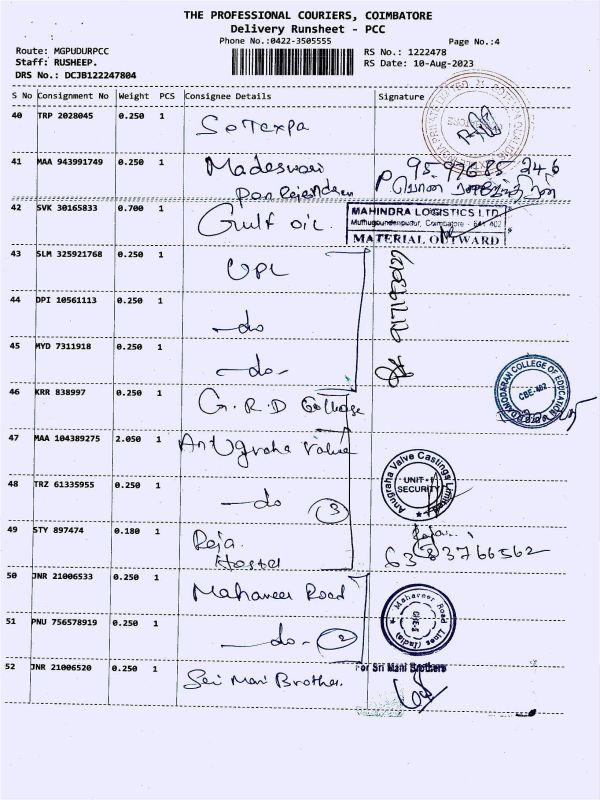 THE PROFESSIONAL COURIERS, COIMBATORE
Delivery Runsheet - PCC
Phone No.:0422-3505555
Page No.:4
Route: MGPUDURPCC
RS No.: 1222478
Staff: RUSHEEP.
RS Date: 10-Aug-2023
DRS No.: DCJB122247804
S No Consignment No Weight PCS Consignee Details Signature
40 TRP 2028045 0.250 1 Sotexpa
41 MAA 943991749 0.250 1 Madeswari
42 SVK 30165833 0.700 1 Gulf oil.
MAHINDRA LOGISTICS LTD.
Muthugoundenpudur, Coimbatore - 641 402
MATERIAL OUTWARD
43 SLM 325921768 0.250 1 UPL
44 DPI 10561113 0.250 1 do
45 MYD 7311918 0.250 1 do-
46 KRR 838997 0.250 1 G.R.D College
COLLEGE OF EDUCATION
CBE-402
47 MAA 104389275 2.050 1 Anugraha Valve
48 TRZ 61335955 0.250 1 do 3
Anugraha Valve Castings Limited
UNIT - I
SECURITY
49 STY 897474 0.180 1 Raja
Hostel
Raja
6383766562
50 JNR 21006533 0.250 1 Mahaveer Road
51 PNU 756578919 0.250 1 do- 2
Mahaveer Road Lines (India)
52 JNR 21006520 0.250 1 Sri Mani Brothers
For Sri Mani Brothers